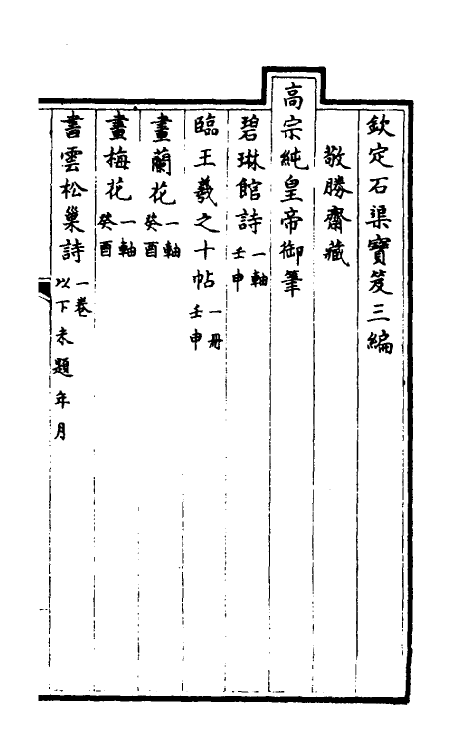 欽定石渠寶笈三編
敬勝齋藏
高宗純皇帝御筆
碧琳館詩一軸壬申
臨王羲之十帖一冊壬申
畫蘭花一軸癸酉
畫梅花一軸癸酉
書雲松巢詩一卷以下未題年月